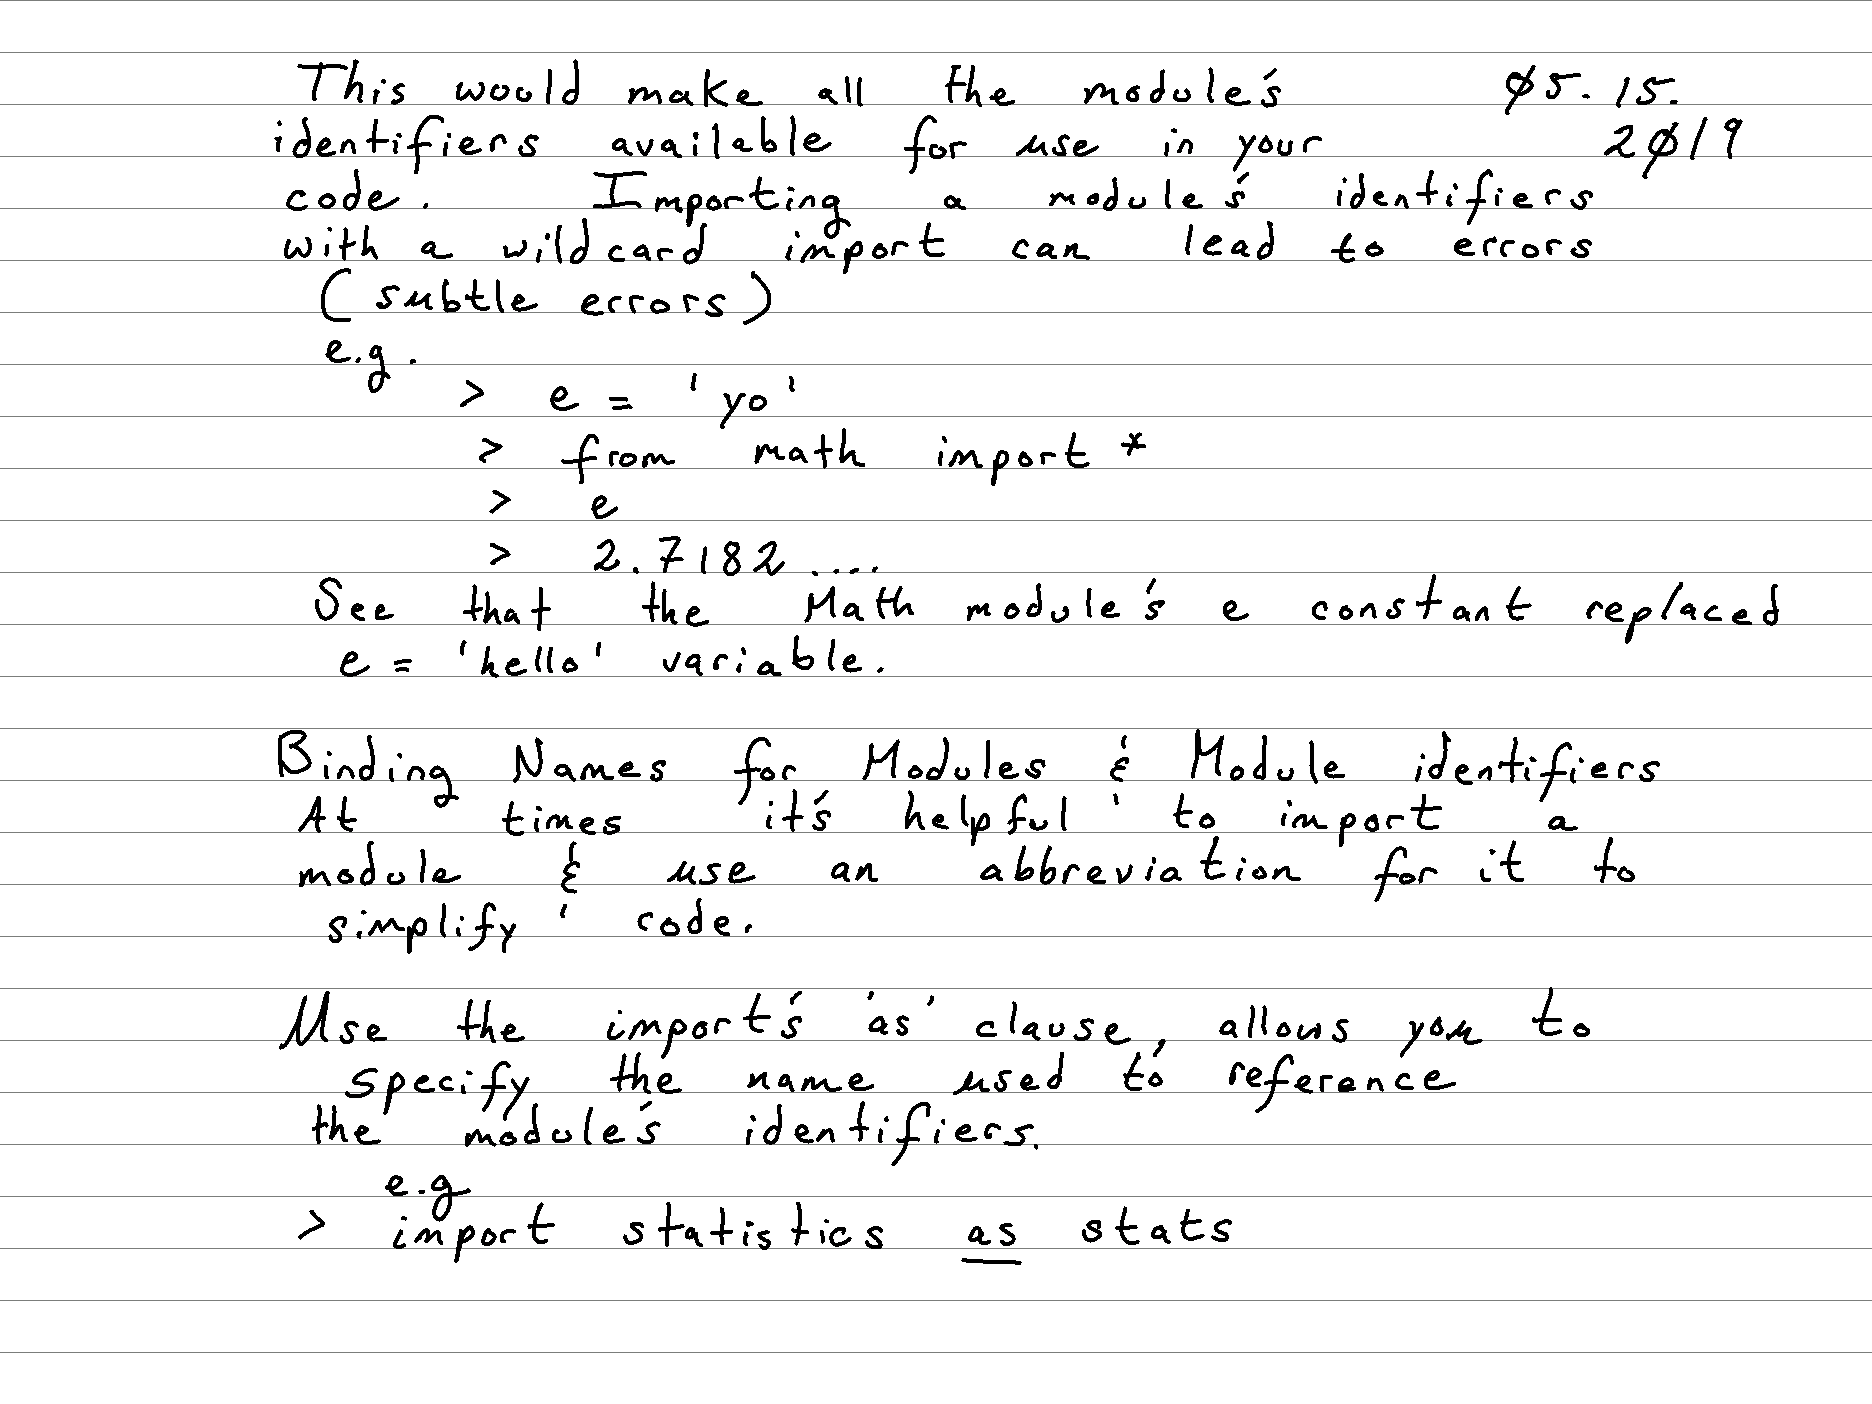 This would make all the module's ø5.15.
identifiers available for use in your 2ø19
code. Importing a module's identifiers
with a wildcard import can lead to errors
(subtle errors)
e.g.
> e = 'yo'
> from math import *
> e
> 2.7182....
See that the Math module's e constant replaced
e = 'hello' variable.
Binding Names for Modules & Module identifiers
At times it's helpful to import a
module & use an abbreviation for it to
simplify code.
Use the import's 'as' clause, allows you to
specify the name used to reference
the module's identifiers.
e.g
> import statistics as stats